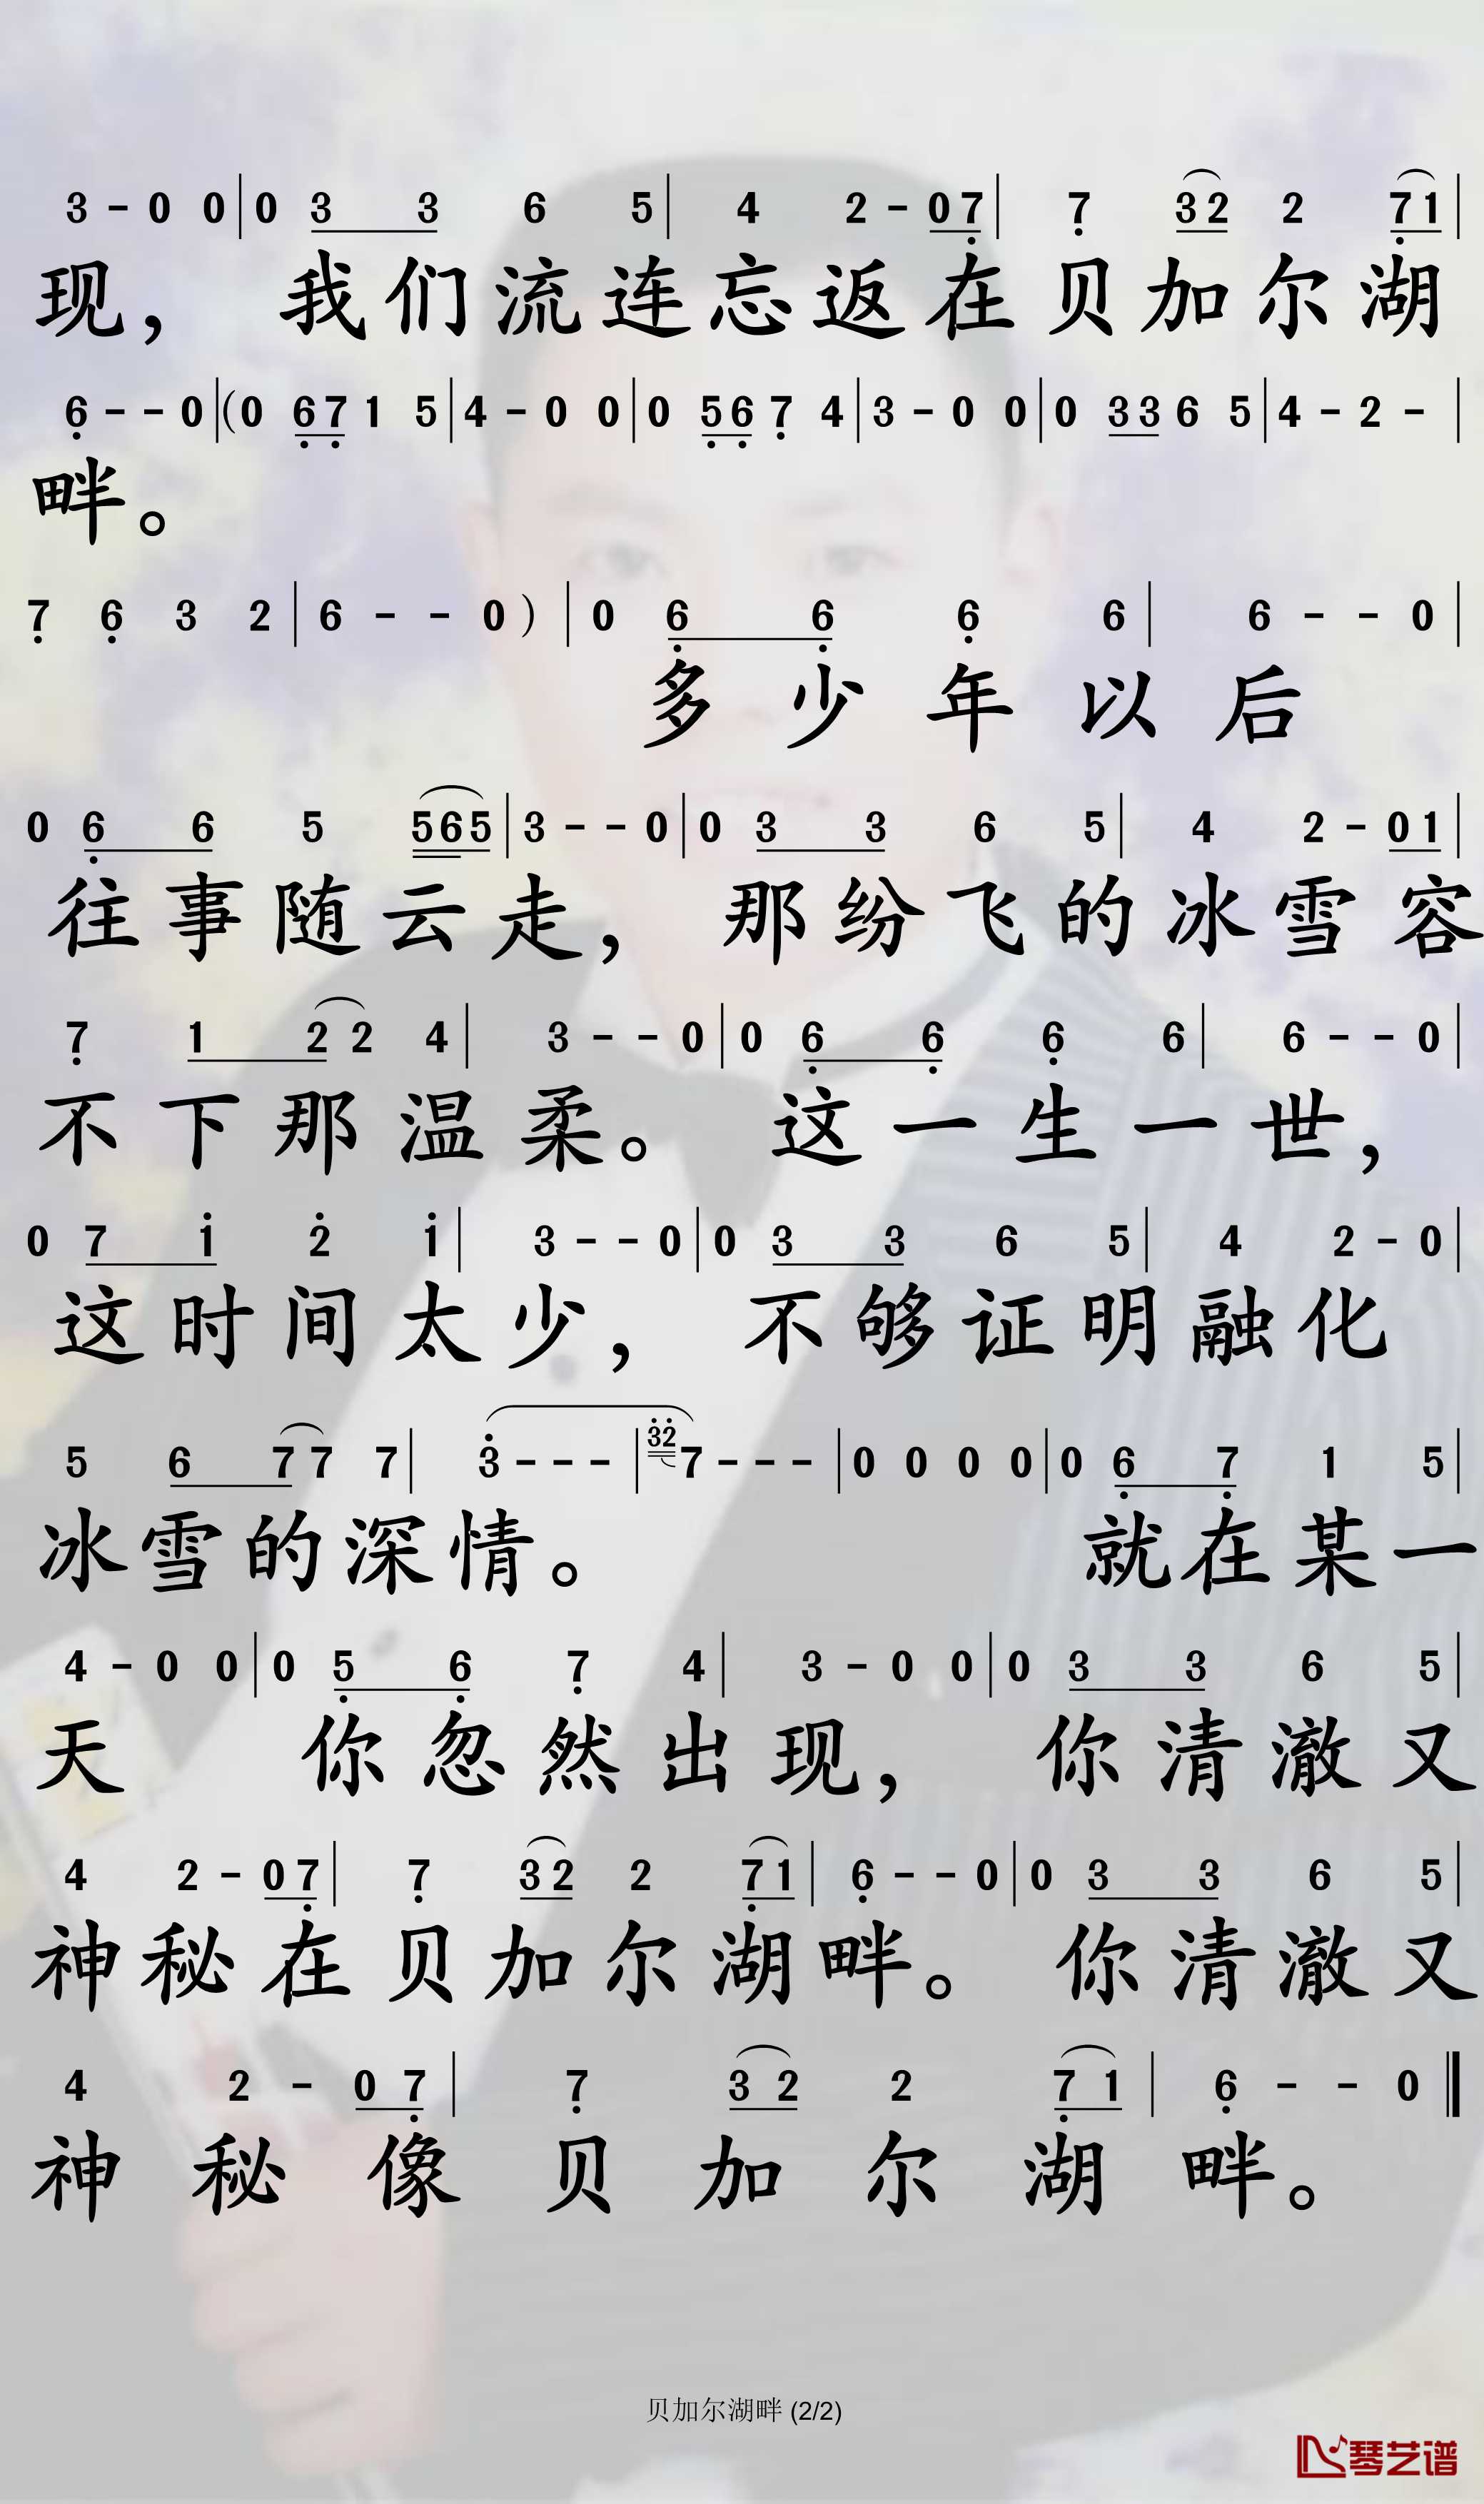 3 - 0 0 | 0 3 3 6 5 | 4 2 - 0 7̣ | 7̣ 3 2 2 7̣ 1 |
现， 我们流连忘返在贝加尔湖
6̣ - - 0 | (0 6̣ 7̣ 1 5 | 4 - 0 0 | 0 5̣ 6̣ 7̣ 4 | 3 - 0 0 | 0 3 3 6 5 | 4 - 2 - |
畔。
7̣ 6̣ 3 2 | 6 - - 0 ) | 0 6̣ 6̣ 6̣ 6 | 6 - - 0 |
多少年以后
0 6̣ 6 5 5 6 5 | 3 - - 0 | 0 3 3 6 5 | 4 2 - 0 1 |
往事随云走， 那纷飞的冰雪容
7̣ 1 2 2 4 | 3 - - 0 | 0 6̣ 6̣ 6̣ 6 | 6 - - 0 |
不下那温柔。 这一生一世，
0 7 1̇ 2̇ 1̇ | 3 - - 0 | 0 3 3 6 5 | 4 2 - 0 |
这时间太少， 不够证明融化
5 6 7 7 7 | 3̇ - - - | 3̇ 2̇ 7 - - - | 0 0 0 0 | 0 6̣ 7̣ 1 5 |
冰雪的深情。 就在某一
4 - 0 0 | 0 5̣ 6̣ 7̣ 4 | 3 - 0 0 | 0 3 3 6 5 |
天 你忽然出现， 你清澈又
4 2 - 0 7̣ | 7̣ 3 2 2 7̣ 1 | 6̣ - - 0 | 0 3 3 6 5 |
神秘在贝加尔湖畔。 你清澈又
4 2 - 0 7̣ | 7̣ 3 2 2 7̣ 1 | 6̣ - - 0 ‖
神秘像贝加尔湖畔。
贝加尔湖畔 (2/2)
琴艺谱